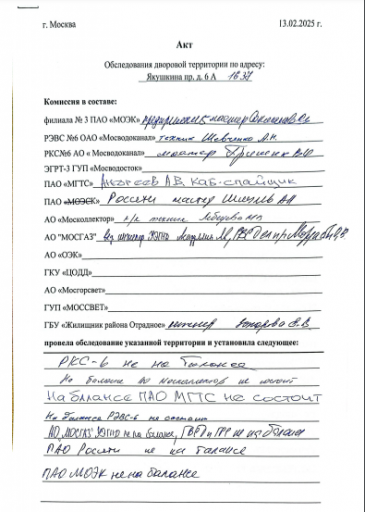 г. Москва 13.02.2025 г.
Акт
Обследования дворовой территории по адресу:
Якушкина пр. д. 6 А
Комиссия в составе:
филиала № 3 ПАО «МОЭК»
РЭВС №6 ОАО «Мосводоканал» техник Шевченко А.Н.
РКС№6 АО « Мосводоканал» мастер
ЭГРТ-3 ГУП «Мосводосток»
ПАО «МГТС» А.В. каб-спайщик
ПАО «МОЭСК» Россети мастер
АО «Москоллектор» техник
АО "МОСГАЗ"
АО «ОЭК»
ГКУ «ЦОДД»
АО «Мосгорсвет»
ГУП «МОССВЕТ»
ГБУ «Жилищник района Отрадное» инженер
провела обследование указанной территории и установила следующее:
РКС-6 не на балансе
На балансе АО Москоллектор не состоит
На балансе ПАО МГТС не состоит
На балансе РЭВС-6 не состоит
АО "МОСГАЗ" не на балансе, не на балансе
ПАО Россети не на балансе
ПАО МОЭК не на балансе